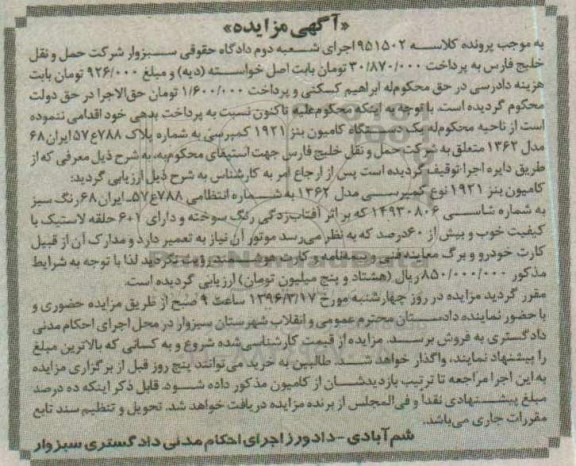 «آگهی مزایده»
به موجب پرونده کلاسه ۹۵۱۵۰۲ اجرای شعبه دوم دادگاه حقوقی سبزوار شرکت حمل و نقل
خلیج فارس به پرداخت ۳۰/۸۷۰/۰۰۰ تومان بابت اصل خواسته (دیه) و مبلغ ۹۲۶/۰۰۰ تومان بابت
هزینه دادرسی در حق محکوم‌له ابراهیم کسکنی و پرداخت ۱/۶۰۰/۰۰۰ تومان حق‌الاجرا در حق دولت
محکوم گردیده است. با توجه به اینکه محکوم‌علیه تاکنون نسبت به پرداخت بدهی خود اقدامی ننموده
است از ناحیه محکوم‌له یک دستگاه کامیون بنز ۱۹۲۱ کمپرسی به شماره پلاک ۷۸۸ع۵۷ ایران ۶۸
مدل ۱۳۶۲ متعلق به شرکت حمل و نقل خلیج فارس جهت استیفای محکوم‌به، به شرح ذیل معرفی که از
طریق دایره اجرا توقیف گردیده است پس از ارجاع امر به کارشناس به شرح ذیل ارزیابی گردید:
کامیون بنز ۱۹۲۱ نوع کمپرسی مدل ۱۳۶۲ به شماره انتظامی ۷۸۸ع۵۷ـ ایران ۶۸، رنگ سبز
به شماره شاسی ۱۴۹۳۰۸۰۶ که بر اثر آفتاب‌زدگی رنگ سوخته و دارای ۱+۶ حلقه لاستیک با
کیفیت خوب و بیش از ۶۰درصد که به نظر می‌رسد موتور آن نیاز به تعمیر دارد و مدارک آن از قبیل
کارت خودرو و برگ معاینه فنی و بیمه‌نامه و کارت هوشمند رویت نگردید لذا با توجه به شرایط
مذکور ۸۵۰/۰۰۰/۰۰۰ریال (هشتاد و پنج میلیون تومان) ارزیابی گردیده است.
مقرر گردید مزایده در روز چهارشنبه مورخ ۱۳۹۶/۳/۱۷ ساعت ۹ صبح از طریق مزایده حضوری و
با حضور نماینده دادستان محترم عمومی و انقلاب شهرستان سبزوار در محل اجرای احکام مدنی
دادگستری به فروش برسد. مزایده از قیمت کارشناسی‌شده شروع و به کسانی که بالاترین مبلغ
را پیشنهاد نمایند، واگذار خواهد شد. طالبین به خرید می‌توانند پنج روز قبل از برگزاری مزایده
به این اجرا مراجعه تا ترتیب بازدیدشان از کامیون مذکور داده شود. قابل ذکر اینکه ده درصد
مبلغ پیشنهادی نقدا و فی‌المجلس از برنده مزایده دریافت خواهد شد. تحویل و تنظیم سند تابع
مقررات جاری می‌باشد.
شم‌آبادی - دادورز اجرای احکام مدنی دادگستری سبزوار